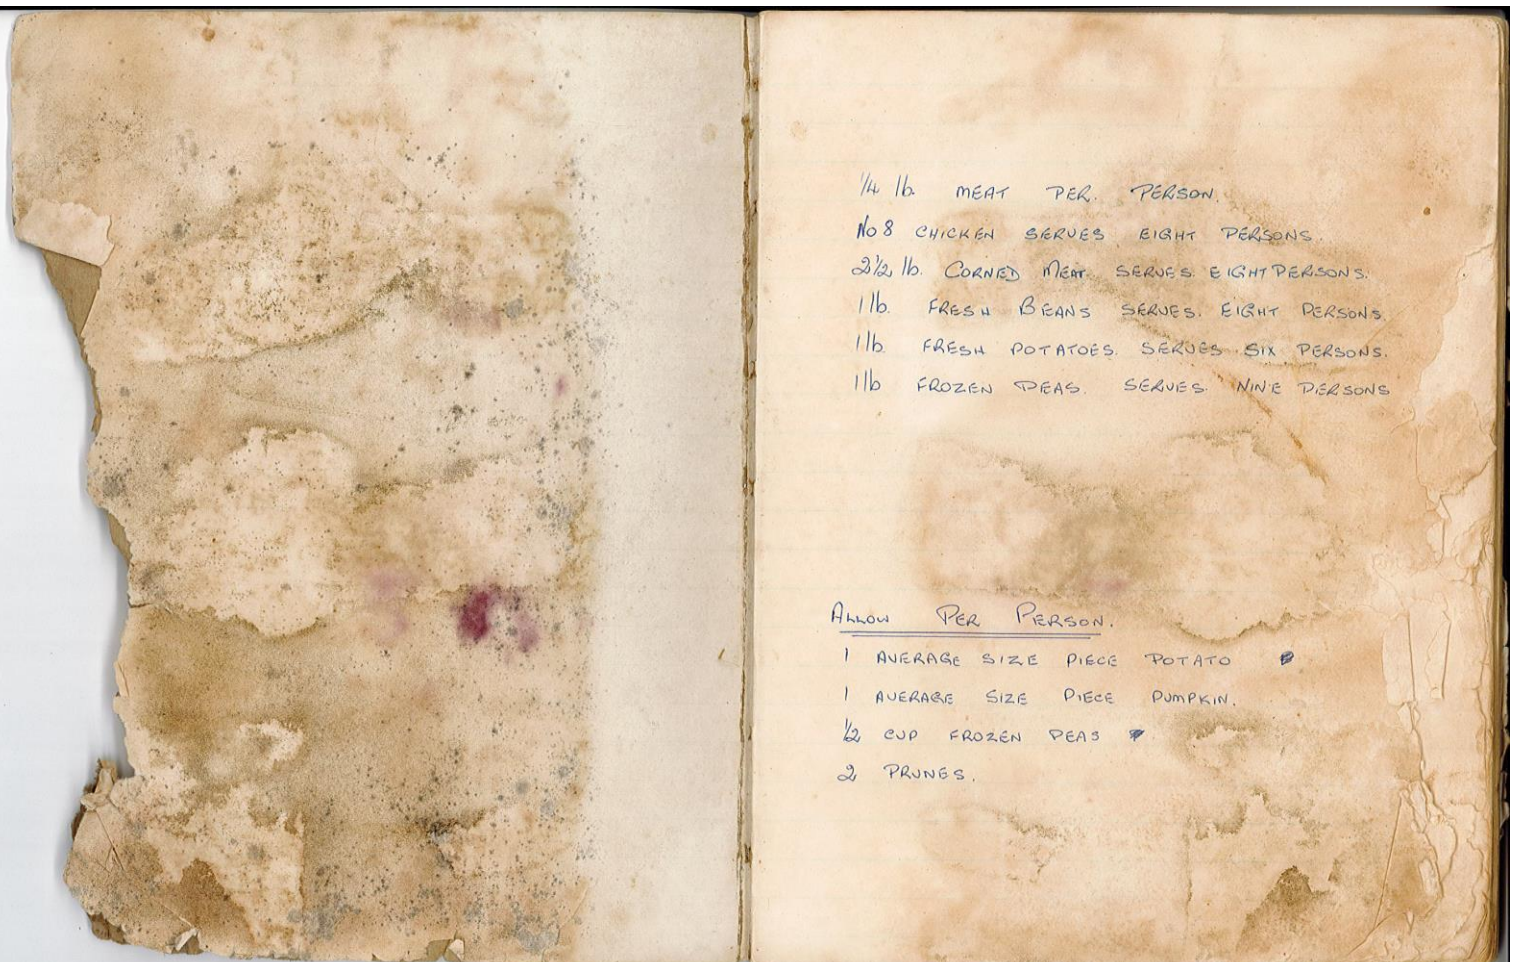 1/4 lb. MEAT PER. PERSON.
No 8 CHICKEN SERVES EIGHT PERSONS.
2 1/2 lb. CORNED MEAT. SERVES. EIGHT PERSONS.
1 lb. FRESH BEANS SERVES. EIGHT PERSONS.
1 lb. FRESH POTATOES. SERVES SIX PERSONS.
1 lb FROZEN PEAS. SERVES. NINE PERSONS
ALLOW PER PERSON.
1 AVERAGE SIZE PIECE POTATO
1 AVERAGE SIZE PIECE PUMPKIN.
1/2 CUP FROZEN PEAS
2 PRUNES.